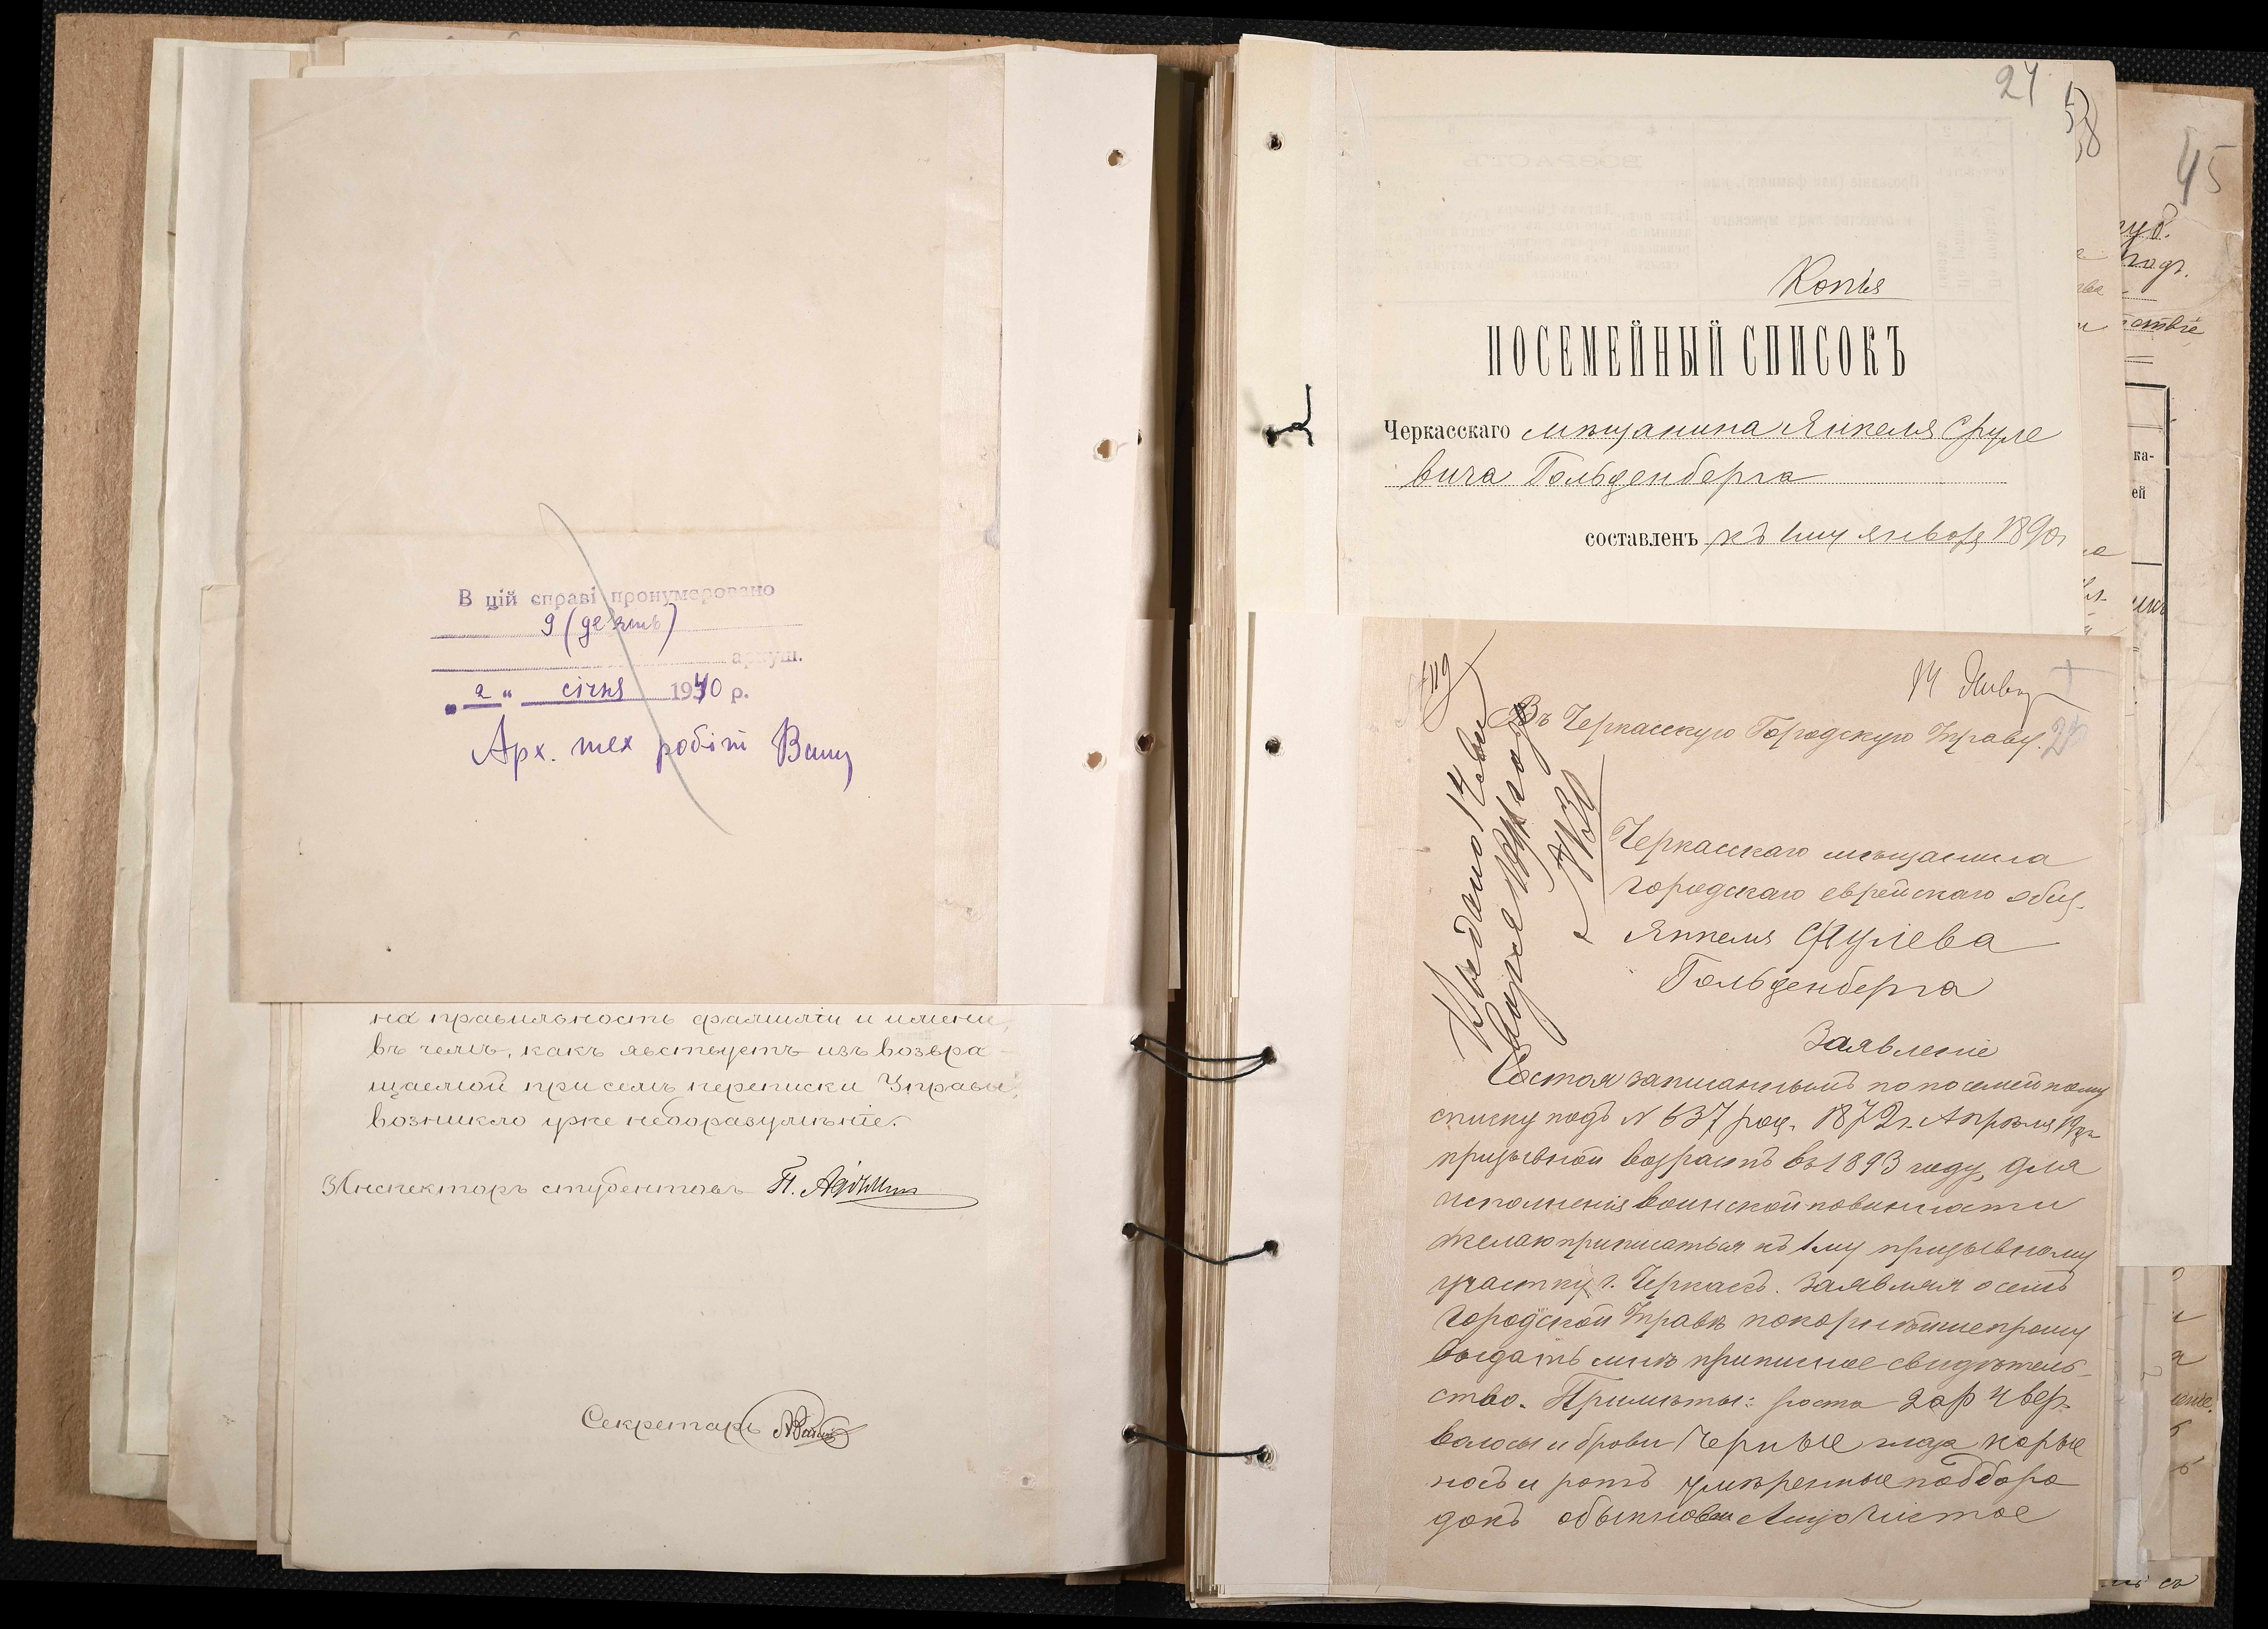 В цій справі пронумеровано
9 (девять)
аркуш.
„2“ січня 1940 р.
Арх. тех робіт
на правильность фамиліи и имени,
въ чемъ, какъ явствуетъ изъ возвра-
щаемой при семъ переписки Управы,
возникло уже недоразумѣніе.
Инспекторъ студентовъ
Секретарь
24
58
45
Копія
ПОСЕМЕЙНЫЙ СПИСОКЪ
Черкасскаго мѣщанина Янкеля Сруле
вича Гольденберга
составленъ къ 1му января 1890г
14 Янвр
Въ Черкасскую Городскую Управу.
Черкасскаго мѣщанина
городскаго еврейскаго общ.
Янкеля Срулева
Гольденберга
Заявленіе
Выдано 14 янв
№ 30
Состоя записаннымъ по посемейному
списку подъ № 637 рож. 1872г. Апрѣля 19дн
призывной возрастъ въ 1893 году, для
исполненія воинской повинности
желаю приписаться къ 1му призывному
участку г. Черкасъ. Заявляя о семъ
Городской Управѣ покорнѣйше прошу
выдать мнѣ приписное свидѣтель-
ство. Примѣты: роста 2 ар 4 вер.
волосы и брови черные глаза карые
носъ и ротъ умѣренные подборо
докъ обыкновен лицо чистое